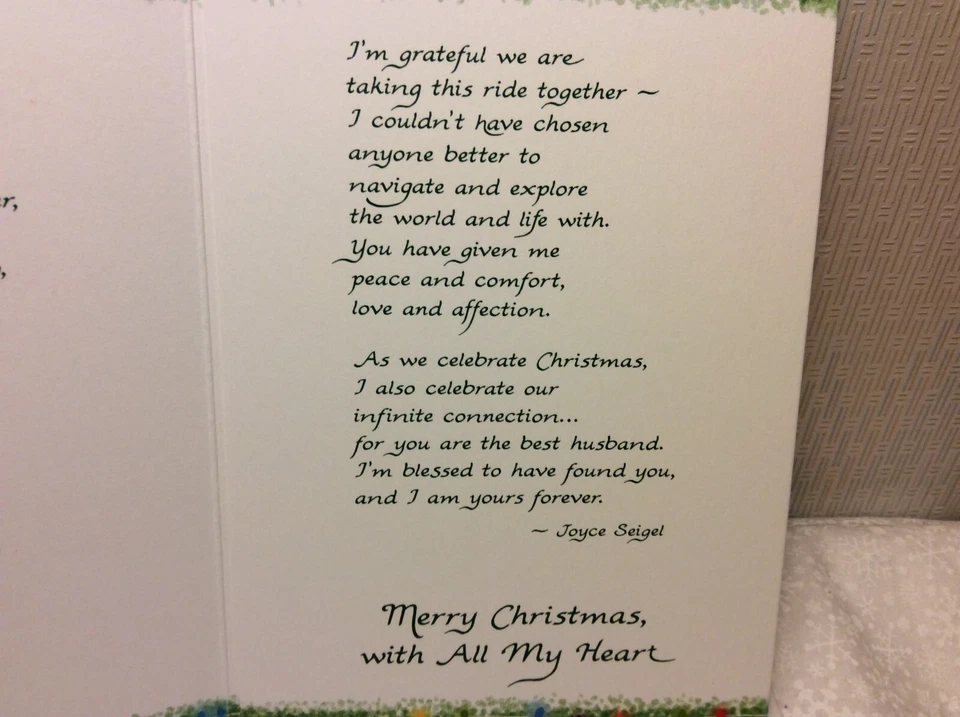 I'm grateful we are
taking this ride together ~
I couldn't have chosen
anyone better to
navigate and explore
the world and life with.
You have given me
peace and comfort,
love and affection.
As we celebrate Christmas,
I also celebrate our
infinite connection...
for you are the best husband.
I'm blessed to have found you,
and I am yours forever.
~ Joyce Seigel
Merry Christmas,
with All My Heart